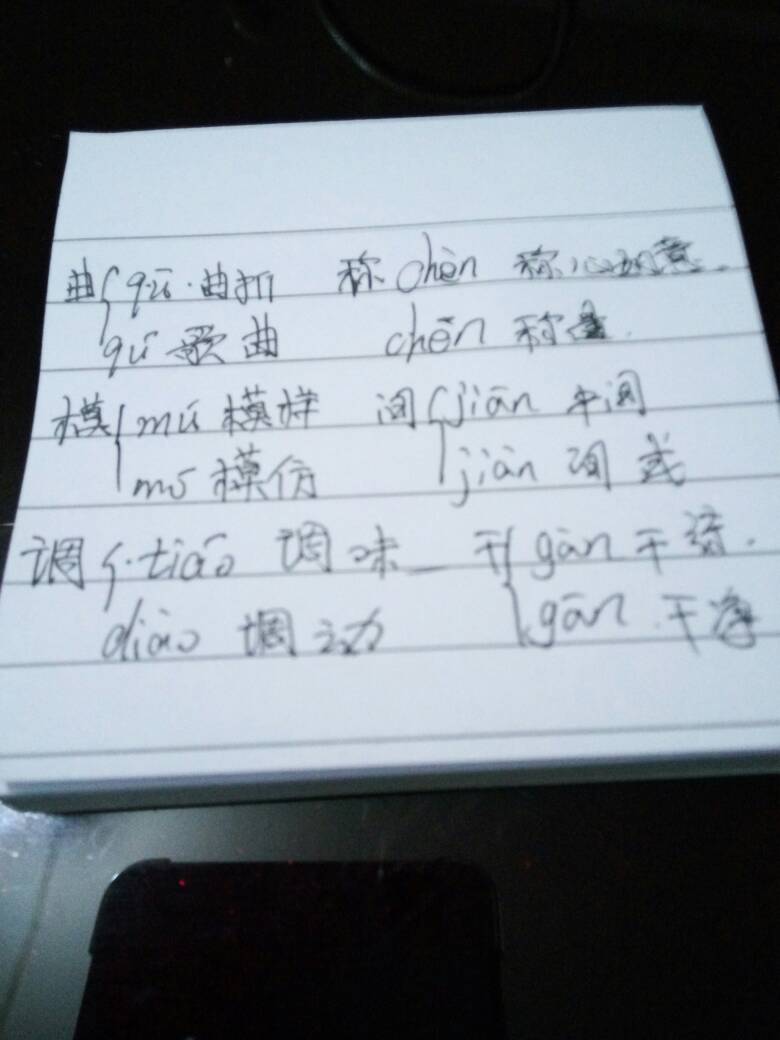 曲{qū·曲折 称chèn 称心如意.
qǔ 歌曲 chēn 称量.
模{mú 模样 间{jiān 中间
mó 模仿 jiàn 间或
调{·tiáo 调味 干{gàn 干活.
diào 调动 gān.干净